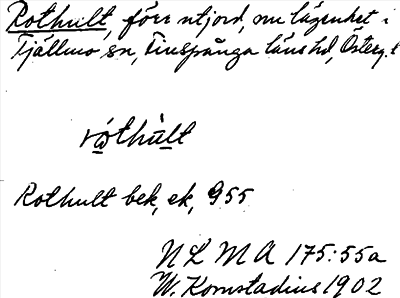 Rothult, förr utjord, nu lägenhet i
Tjällmo sn, Finspånga läns hd, Österg.l
róthùlt
Rothult bek, ek, 955
NLMA 175:55a
W. Kornstadius 1902